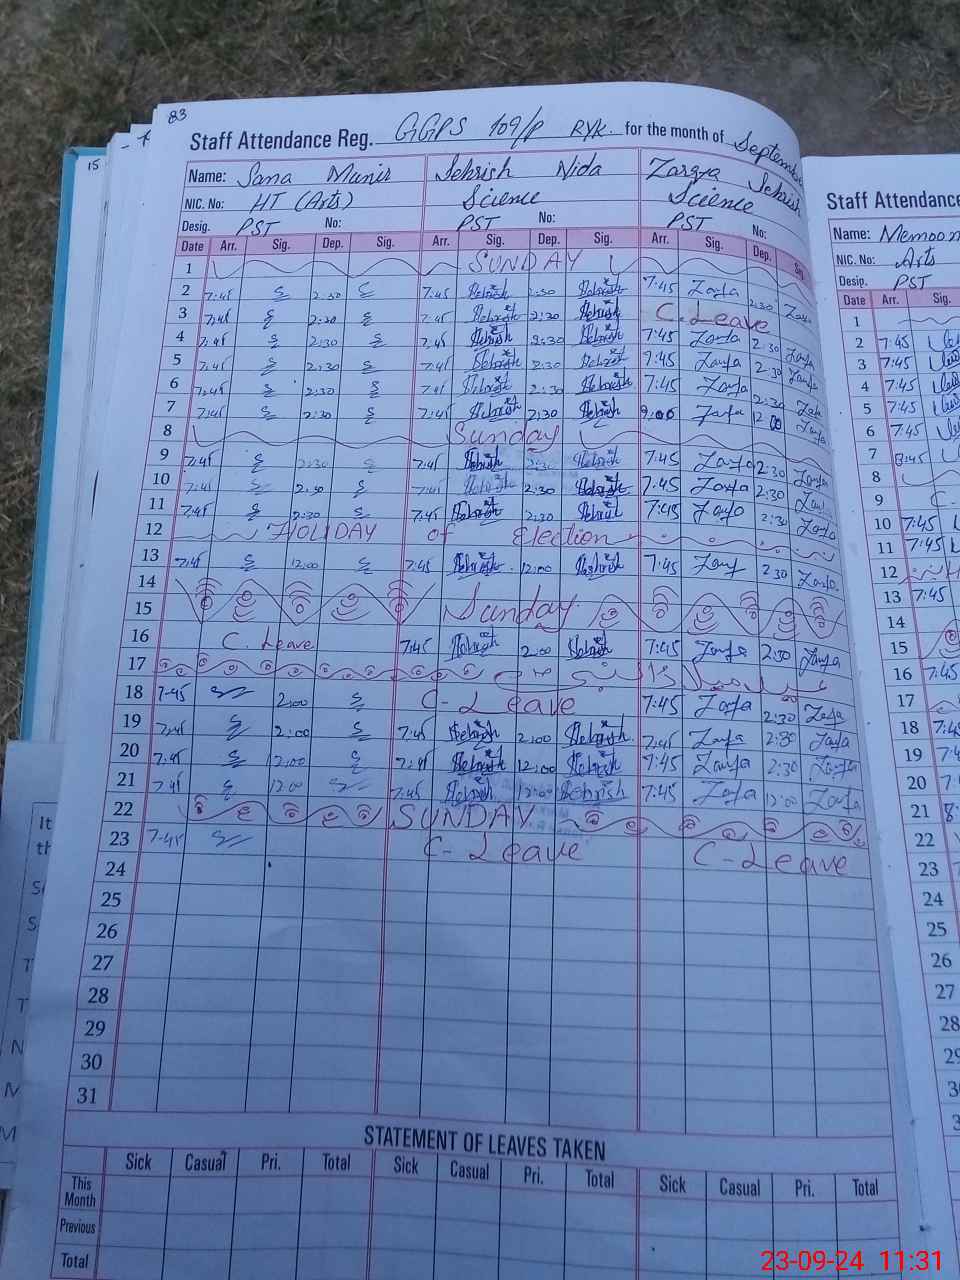 83
15
Staff Attendance Reg. GGPS 109/P RYK. for the month of September
Name: Sana Munir Sehrish Nida Zarqa Sehrish
NIC. No: HT (Arts) Science Science
Desig. PST No: PST No: PST No:
Date Arr. Sig. Dep. Sig. Arr. Sig. Dep. Sig. Arr. Sig. Dep. Sig.
1 SUNDAY
2 7:45 2:30 7:45 Sehrish 2:30 Sehrish 7:45 2:30
3 7:45 2:30 7:45 Sehrish 2:30 Sehrish C. Leave
4 7:45 2:30 7:45 Sehrish 2:30 Sehrish 7:45 2:30
5 7:45 2:30 7:45 Sehrish 2:30 Sehrish 7:45 2:30
6 7:45 2:30 7:45 Sehrish 2:30 Sehrish 7:45 2:30
7 7:45 2:30 7:45 Sehrish 2:30 Sehrish 9:00 12:00
8 Sunday
9 7:45 2:30 7:45 Sehrish 2:30 Sehrish 7:45 2:30
10 7:45 2:30 7:45 Sehrish 2:30 Sehrish 7:45 2:30
11 7:45 2:30 7:45 Sehrish 2:30 Sehrish 7:45 2:30
12 HOLIDAY of Election
13 7:45 12:00 7:45 Sehrish 12:00 Sehrish 7:45 2:30
14
15 Sunday
16 C. Leave 7:45 Sehrish 2:00 Sehrish 7:45 2:30
17
18 7-45 2:00 C-Leave 7:45 2:30
19 7:45 2:00 7:45 Sehrish 2:00 Sehrish 7:45 2:30
20 7:45 12:00 7:45 Sehrish 12:00 Sehrish 7:45 2:30
21 7:45 12:00 7:45 Sehrish 12:00 Sehrish 7:45 12:00
22 SUNDAY
23 7-45 C-Leave C-Leave
24
25
26
27
28
29
30
31
STATEMENT OF LEAVES TAKEN
Sick Casual Pri. Total Sick Casual Pri. Total Sick Casual Pri. Total
This Month
Previous
Total
Staff Attendance
Name: Memoon
NIC. No: Arts
Desig. PST
Date Arr. Sig.
1
2 7:45
3 7:45
4 7:45
5 7:45
6 7:45
7 8:45
8
9 C-
10 7:45
11 7:45
12
13 7:45
14
15
16 7:45
17
18 7:45
19 7:45
20 7:45
21 8:
22
23
24
25
26
27
28
29
It
th
23-09-24 11:31